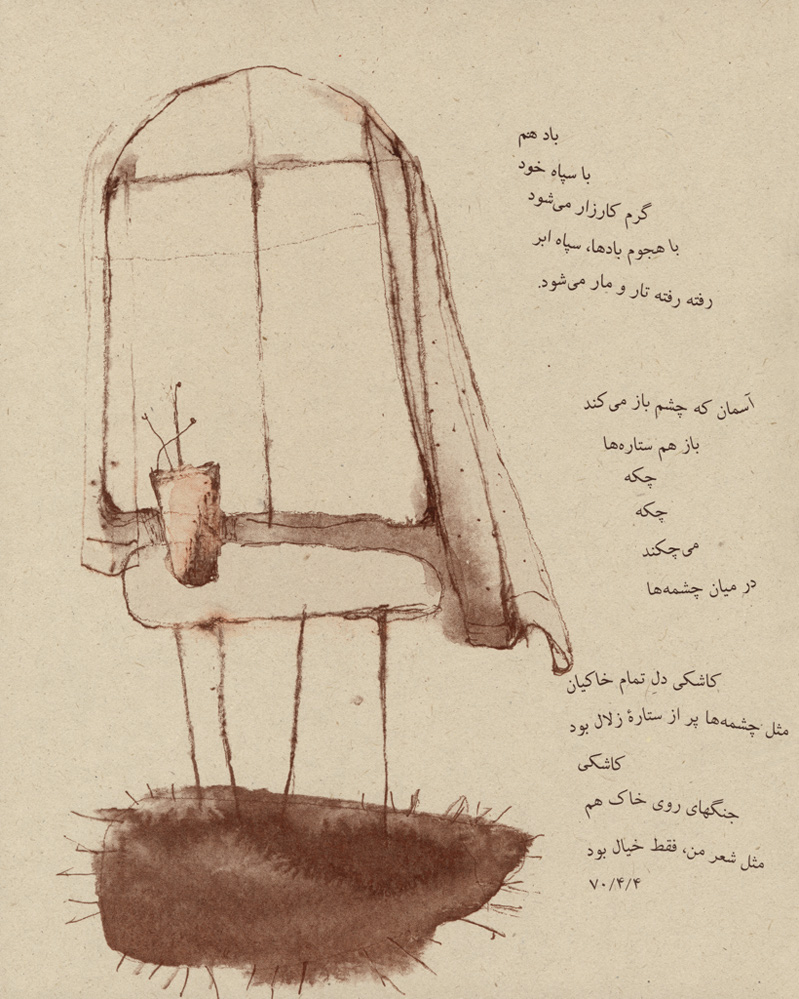 باد هم
با سپاه خود
گرم کارزار می‌شود
با هجوم بادها، سپاه ابر
رفته رفته تار و مار می‌شود.
آسمان که چشم باز می‌کند
باز هم ستاره‌ها
چکه
چکه
می‌چکند
در میان چشمه‌ها
کاشکی دلِ تمام خاکیان
مثل چشمه‌ها پر از ستارهٔ زلال بود
کاشکی
جنگهای روی خاک هم
مثل شعر من، فقط خیال بود
۷۰/۴/۴